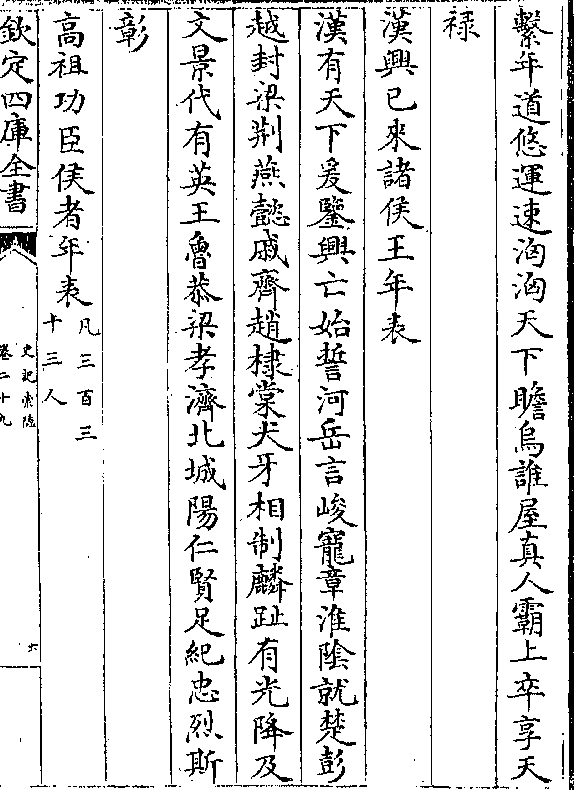 繫年道悠運速洶洶天下瞻烏誰屋真人霸上卒享天
禄
漢興已來諸侯王年表
漢有天下爰鑒興亡始誓河岳言峻寵章淮陰就楚彭
越封梁荆燕懿戚齊趙棣棠犬牙相制麟趾有光降及
文景代有英王魯恭梁孝濟北城陽仁賢足紀忠烈斯
彰
高祖功臣侯者年表凡三百三
十三人
欽定四庫全書
史記索隠
卷二十九
六